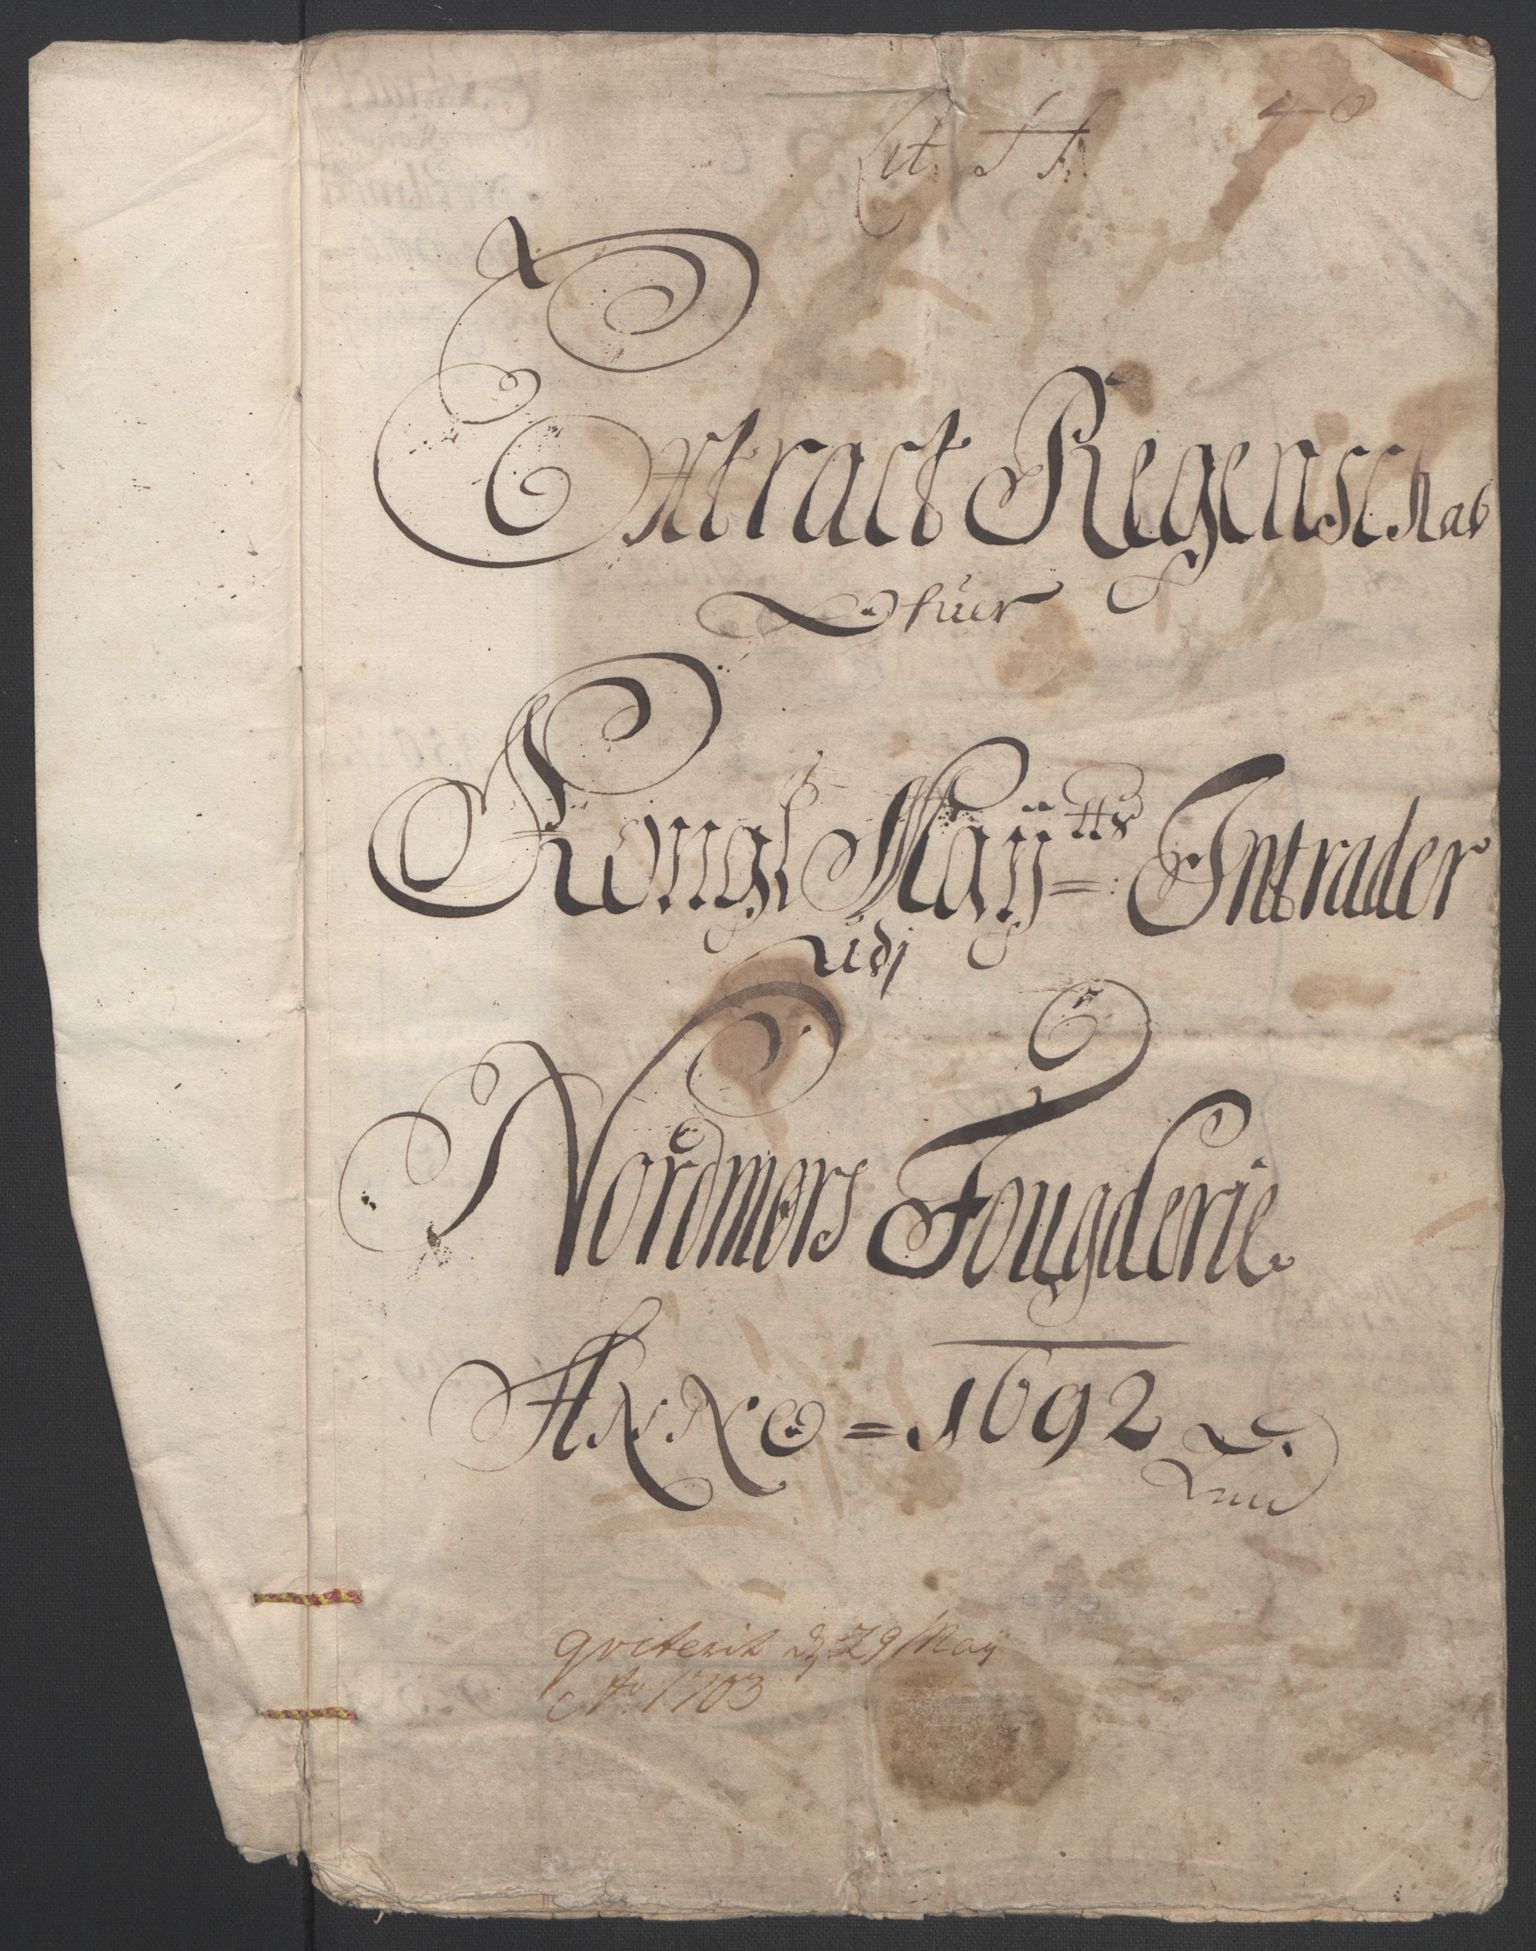 Lit. H.
Extract Regenschab
ofuer
Kongl Mayj:tts Intrader
udj
Nordmørs Fougderie
Anno = 1692
qviterit d. 29 May
Ao 1703